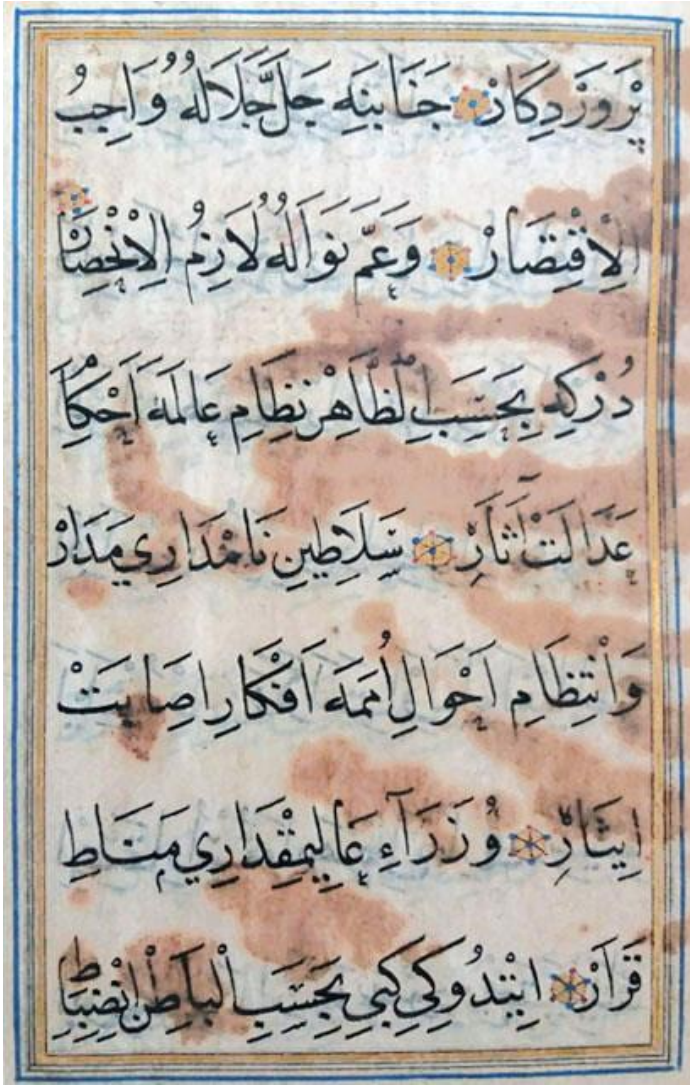 پَرْوَرْدِگَارْ جَنَابِنَه جَلَّ جَلَالُهُ وَاجِبُ
الْاِقْتِصَارْ وَعَمَّ نَوَالُهُ لَازِمُ الْاِنْحِصَارْ
دُرْكِه بِحَسَبِ الظَّاهِرْ نِظَامِ عَالَمَه اَحْكَامِ
عَدَالَتْ آثَارِ سَلَاطِينِ نَامْدَارِي مَدَارْ
وَانْتِظَامِ اَحْوَالِ اُمَمَه اَفْكَارِ اِصَابَتْ
اِيثَارِ وُزَرَآءِ عَالِيمِقْدَارِي مَنَاطِ
قَرَارْ اِيْتْدُوكِي كِبِي بِحَسَبِ الْبَاطِنْ اِنْضِبَاطِ